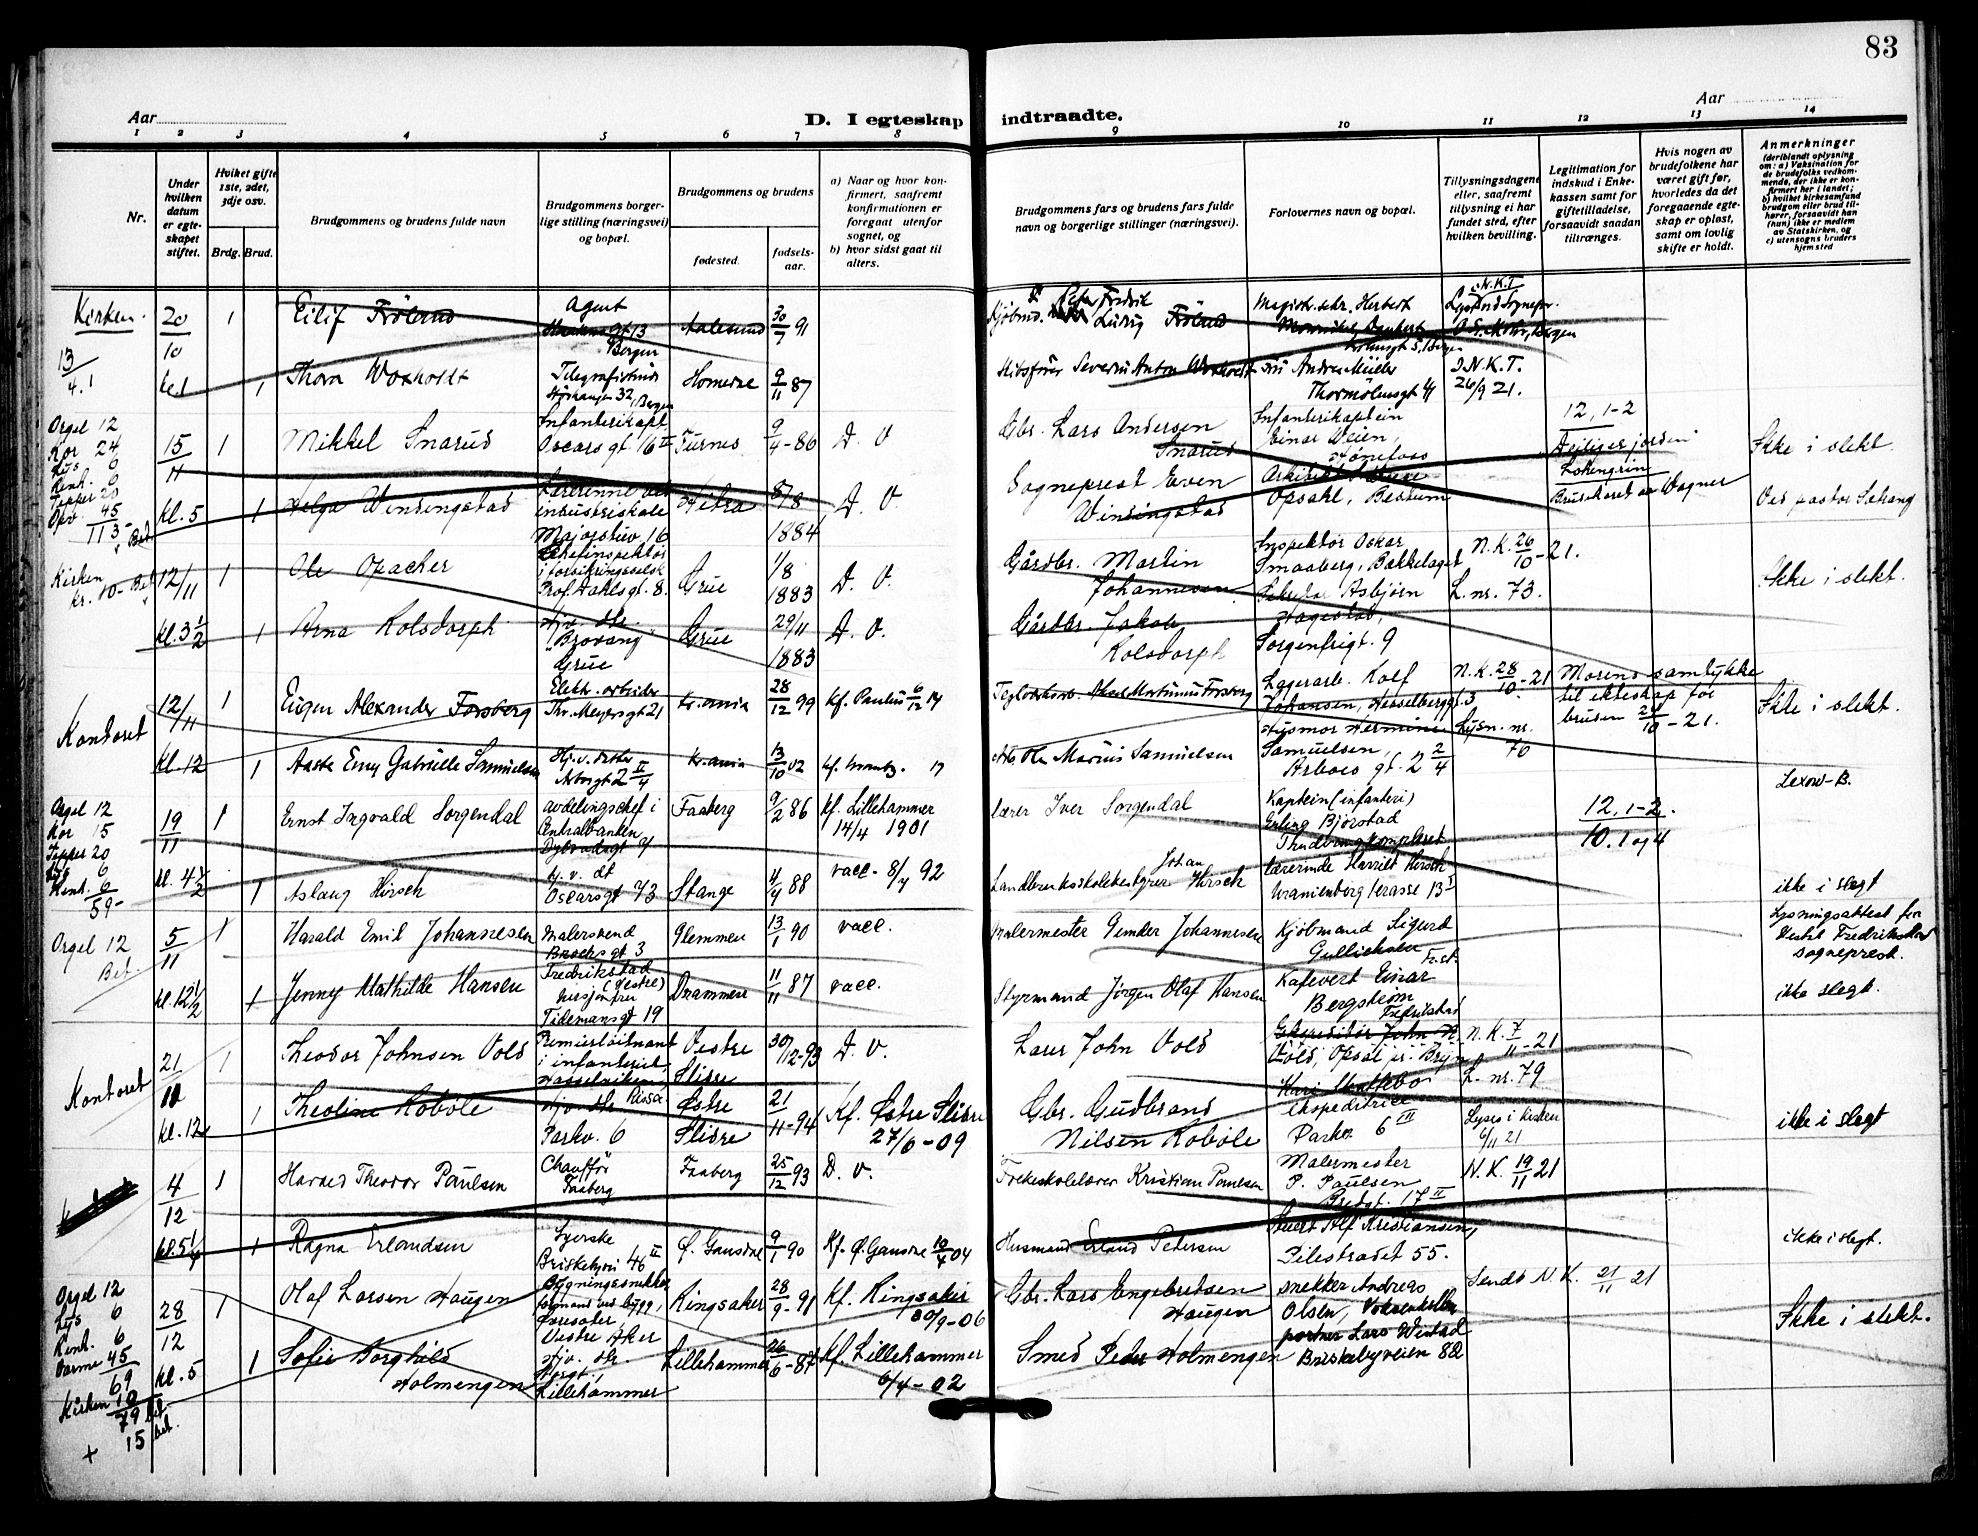 83
Aar
D. I egteskap indtraadte.
Aar
1 2 3 4 5 6 7 8 9 10 11 12 13 14
Nr.
Under hvilken datum er egte-skapet stiftet.
Hvilket gifte 1ste, 2det, 3dje osv.
Brdg. Brud.
Brudgommens og brudens fulde navn
Brudgommens borger-lige stilling (næringsvei) og bopæl.
Brudgommens og brudens
fødested.
fødsels-aar.
a) Naar og hvor kon-firmert, saafremt konfirmationen er foregaat utenfor sognet, og
b) hvor sidst gaat til alters.
Brudgommens fars og brudens fars fulde navn og borgerlige stillinger (næringsvei).
Forlovernes navn og bopæl.
Tillysningsdagene eller, saafremt tillysning ei har fundet sted, efter hvilken bevilling.
Legitimation for indskud i Enke-kassen samt for giftetilladelse, forsaavidt saadan tiltrænges.
Hvis nogen av brudefolkene har været gift før, hvorledes da det foregaaende egte-skap er opløst, samt om lovlig skifte er holdt.
Anmerkninger
(deriblandt oplysning om: a) Vaksination for de brudefolks vedkom-mende, der ikke er kon-firmert her i landet; b) hvilket kirkesamfund brudgom eller brud til-hører, forsaavidt han (hun) ikke er medlem av Statskirken, og c) utensogns bruders hjemsted
Kirken.
20/10
1
Eilif Frøland
Agent
Bergen
Aalesund
30/7 91
Kjøbmd. Peter Fredrik
Ludvig Frøland
Magistr.sekr. Herbert
I.N.K.T.
13/4.1
kl.
1
Thora Woxholdt
Telegrafistinde
32, Bergen
Homerne
9/11 87
Skibsfører Severin Anton Woxholdt
Andrea Müller
Thormöhlensgt 4
I.N.K.T.
26/9 21.
Orgel 12
Kor 24
Lys 6
Renh. 6
Tepper 20
Opv 45
113-
Bet
15/11
1
Mikkel Snarud
Infanterikapt
Oscarsgt 16 II
Furnes
9/4-86
D. V
Gbr. Lars Andersen
Snarud
Infanterikaptein
Einar Weien,
Hønefoss
12, 1-2
Deiligejorden
Ikke i slekt.
kl. 5
1
Helga Windingstad
Lærerinne ved
industriskole
Majorstuv 16
Hitra
8/8
1884
D. V.
Sogneprest Even
Windingstad
Arkitekt
Opsahl, Bestum
Lohengrin
Brudekoret av Wagner
Ved pastor Schang
Kirken
kr. 10- Bet
12/11
1
Ole Opacher
i forsikringsselsk
Prof. Dahlsgt. 8.
Grue
1/8
1883
D. V.
Gårdbr. Martin
Johannesen
Inspektør Oskar
Smaaberg, Bakkelaget
N.K. 26/10-21.
L. nr. 73.
Ikke i slekt.
kl. 3 1/2
1
Arna Kolsdorph
Hjv. dtr.
"Brovang"
Grue
Grue
29/11
1883
D. V.
Gårdbr. Jakob
Kolsdorph
Asbjørn
Hagestad,
Sorgenfrigt. 9
Kontoret
12/11
1
Eugen Alexander Forsberg
Elektr. arbeider
Thv. Meyersgt 21
Kr.ania
28/12 99
Kf. Paulus 6/12 14
Karl Martinius Forsberg
Lagerarb. Rolf
Johansen, Hesselbergsgt. 3
N.K. 28/10-21
Lysn. nr.
70
Morens samtykke
til ekteskap for
bruden 24/10-21.
Ikke i slekt.
kl. 12
1
Aasta Emy Gabrielle Samuelsen
Hjv. datter
Arbosgt 2 II/4
Kr.ania
13/10 02
Ole Marius Samuelsen
Husmor Hermine
Samuelsen,
Arboes gt. 2 2/4
Lexow-B.
Orgel 12
Kor 15
Tepper 20
Lys 6
Renh. 6
59-
19/11
1
Ernst Ingvald Sorgendal
avdelingschef i
Centralbanken
Faaberg
9/2 86
kf. Lillehammer
14/4 1901
lærer Iver Sorgendal
Kaptein (infanteri)
Erling Bjørstad
12, 1-2.
10. 1 og 4
kl. 4 1/2
1
Aslaug Hirsch
hj. v. dt
Oscarsgt 73
Stange
4/4 88
vacc. 8/7 92
Landbruksskolebestyrer Johan Hirsch
lærerinde Harriet Hirsch
Uranienborg terasse 13 I
ikke i slegt
Orgel 12
Bet.
5/11
1
Harald Emil Johannesen
Malersvend
Brochsgt 3
Fredrikstad
(Vestre)
Glemmen
13/1 90
vacc.
Malermester Gunder Johannesen
Kjøbmand Sigurd
Gulliksen
Fr.st.
Lysningsattest fra
Vestre Fredrikstad
sogneprest.
kl. 12 1/2
1
Jenny Mathilde Hansen
husjomfru
Tidemansgt 19
Drammen
11/11 87
vacc.
Styrmand Jørgen Olaf Hansen
Kafevert Einar
Bergstrøm
Fredrikstad
ikke slegt.
Kontoret
21/11
1
Theodor Johnsen Vold
Premierløitnant
i infanteriet
Rissa
Vestre
Slidre
30/12-93
D. V.
Lærer John Vold
Ekspeditør John N.
Vold, Opsal pr. Bryn
N.K. 7/11-21
L. nr. 79
kl. 12
1
Theoline Robøle
Hjv. dtr
Parkv. 6
Østre
Slidre
21/11-94
Kf. Østre Slidre
27/6-09
Gbr. Gudbrand
Nilsen Robøle
Kari Skattebo
ekspeditrice
Parkv. 6 III
Lyses i kirken
6/11 21
ikke i slegt
4/12
1
Harald Theodor Paulsen
Chauffør
Faaberg
Faaberg
25/12 93
D. V.
Folkeskolelærer Kristian Paulsen
Malermester
P. Paulsen
Bredgt. 17 II
N.K. 19/11 21
kl. 5 1/4
1
Ragna Erlandsen
Syerske
Briskebyvei 46 II
Ø. Gausdal
9/1 90
Kf. Ø. Gausdal 10/4 04
Husmand Erland Petersen
Alf Kristiansen,
Pilestrædet 55.
ikke i slegt.
Orgel 12
Lys 6
Renh. 6
Varme 45
69
Kirken 10
79 bet.
+ 15 bet.
28/12
1
Olaf Larsen Haugen
Bygningssnekker
Vestre Aker
Ringsaker
28/9-91
kf. Ringsaker
30/9-06
Gbr. Lars Engebretsen
Haugen
snekker Andreas
Olsen, Voksenkollen
Sendt N.K. 21/11 21
Ikke i slekt.
kl. 5
1
Sofie Borghild
Holmengen
Hjv. dtr.
Lillehammer
Lillehammer
26/6-87
Kf. Lillehammer
6/4-02
Smed Peder Holmengen
portner Lars Wistad
Briskebyveien 82